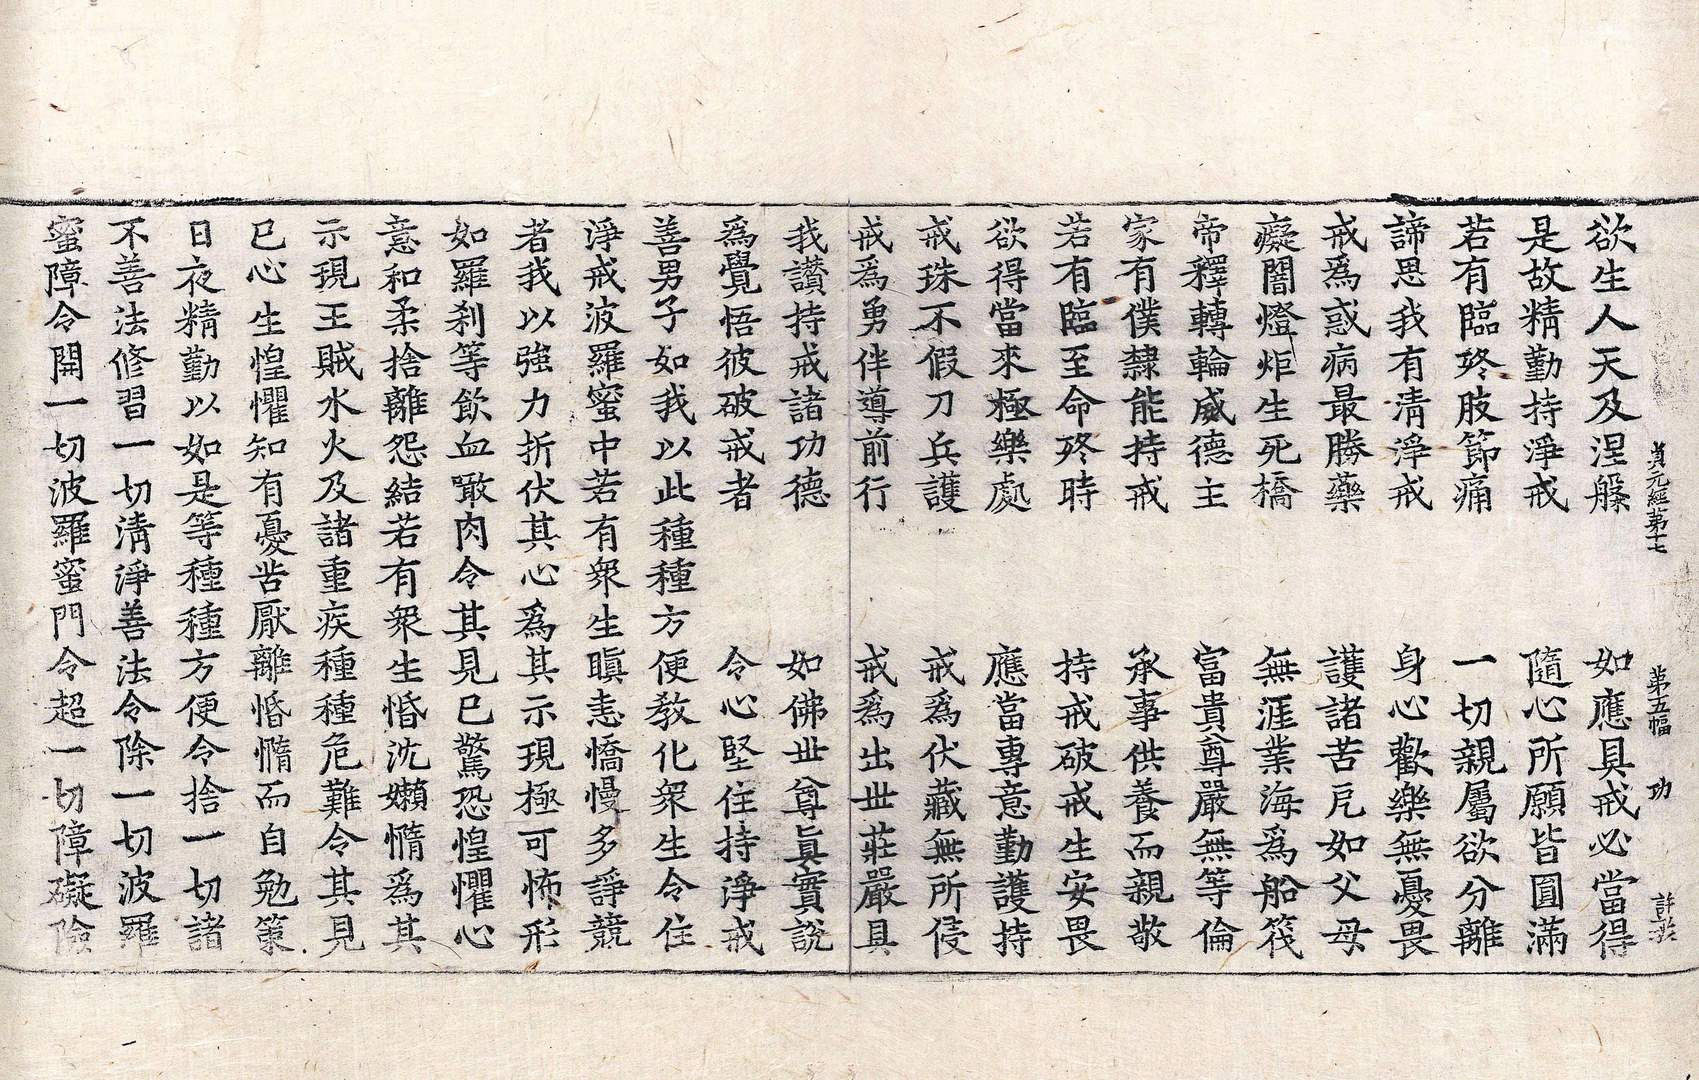 貞元經第十七　第五幅　功
欲生人天及涅槃　如應具戒必當得
是故精勤持淨戒　隨心所願皆圓滿
若有臨終肢節痛　一切親屬欲分離
諦思我有清淨戒　身心歡樂無憂畏
戒爲惑病最勝藥　護諸苦厄如父母
癡闇燈炬生死橋　無涯業海爲船筏
帝釋轉輪威德主　富貴尊嚴無等倫
家有僕隸能持戒　承事供養而親敬
若有臨至命終時　持戒破戒生安畏
欲得當來極樂處　應當專意勤護持
戒珠不假刀兵護　戒爲伏藏無所侵
戒爲勇伴導前行　戒爲出世莊嚴具
我讚持戒諸功德　如佛世尊眞實說
爲覺悟彼破戒者　令心堅住持淨戒
善男子如我以此種種方便教化衆生令住
淨戒波羅蜜中若有衆生瞋恚憍慢多諍競
者我以強力折伏其心爲其示現極可怖形
如羅刹等飲血噉肉令其見已驚恐惶懼心
意和柔捨離怨結若有衆生惛沈嬾惰爲其
示現王賊水火及諸重疾種種危難令其見
已心生惶懼知有憂苦厭離惛惰而自勉策
日夜精勤以如是等種種方便令捨一切諸
不善法修習一切清淨善法令除一切波羅
蜜障令開一切波羅蜜門令超一切障礙險